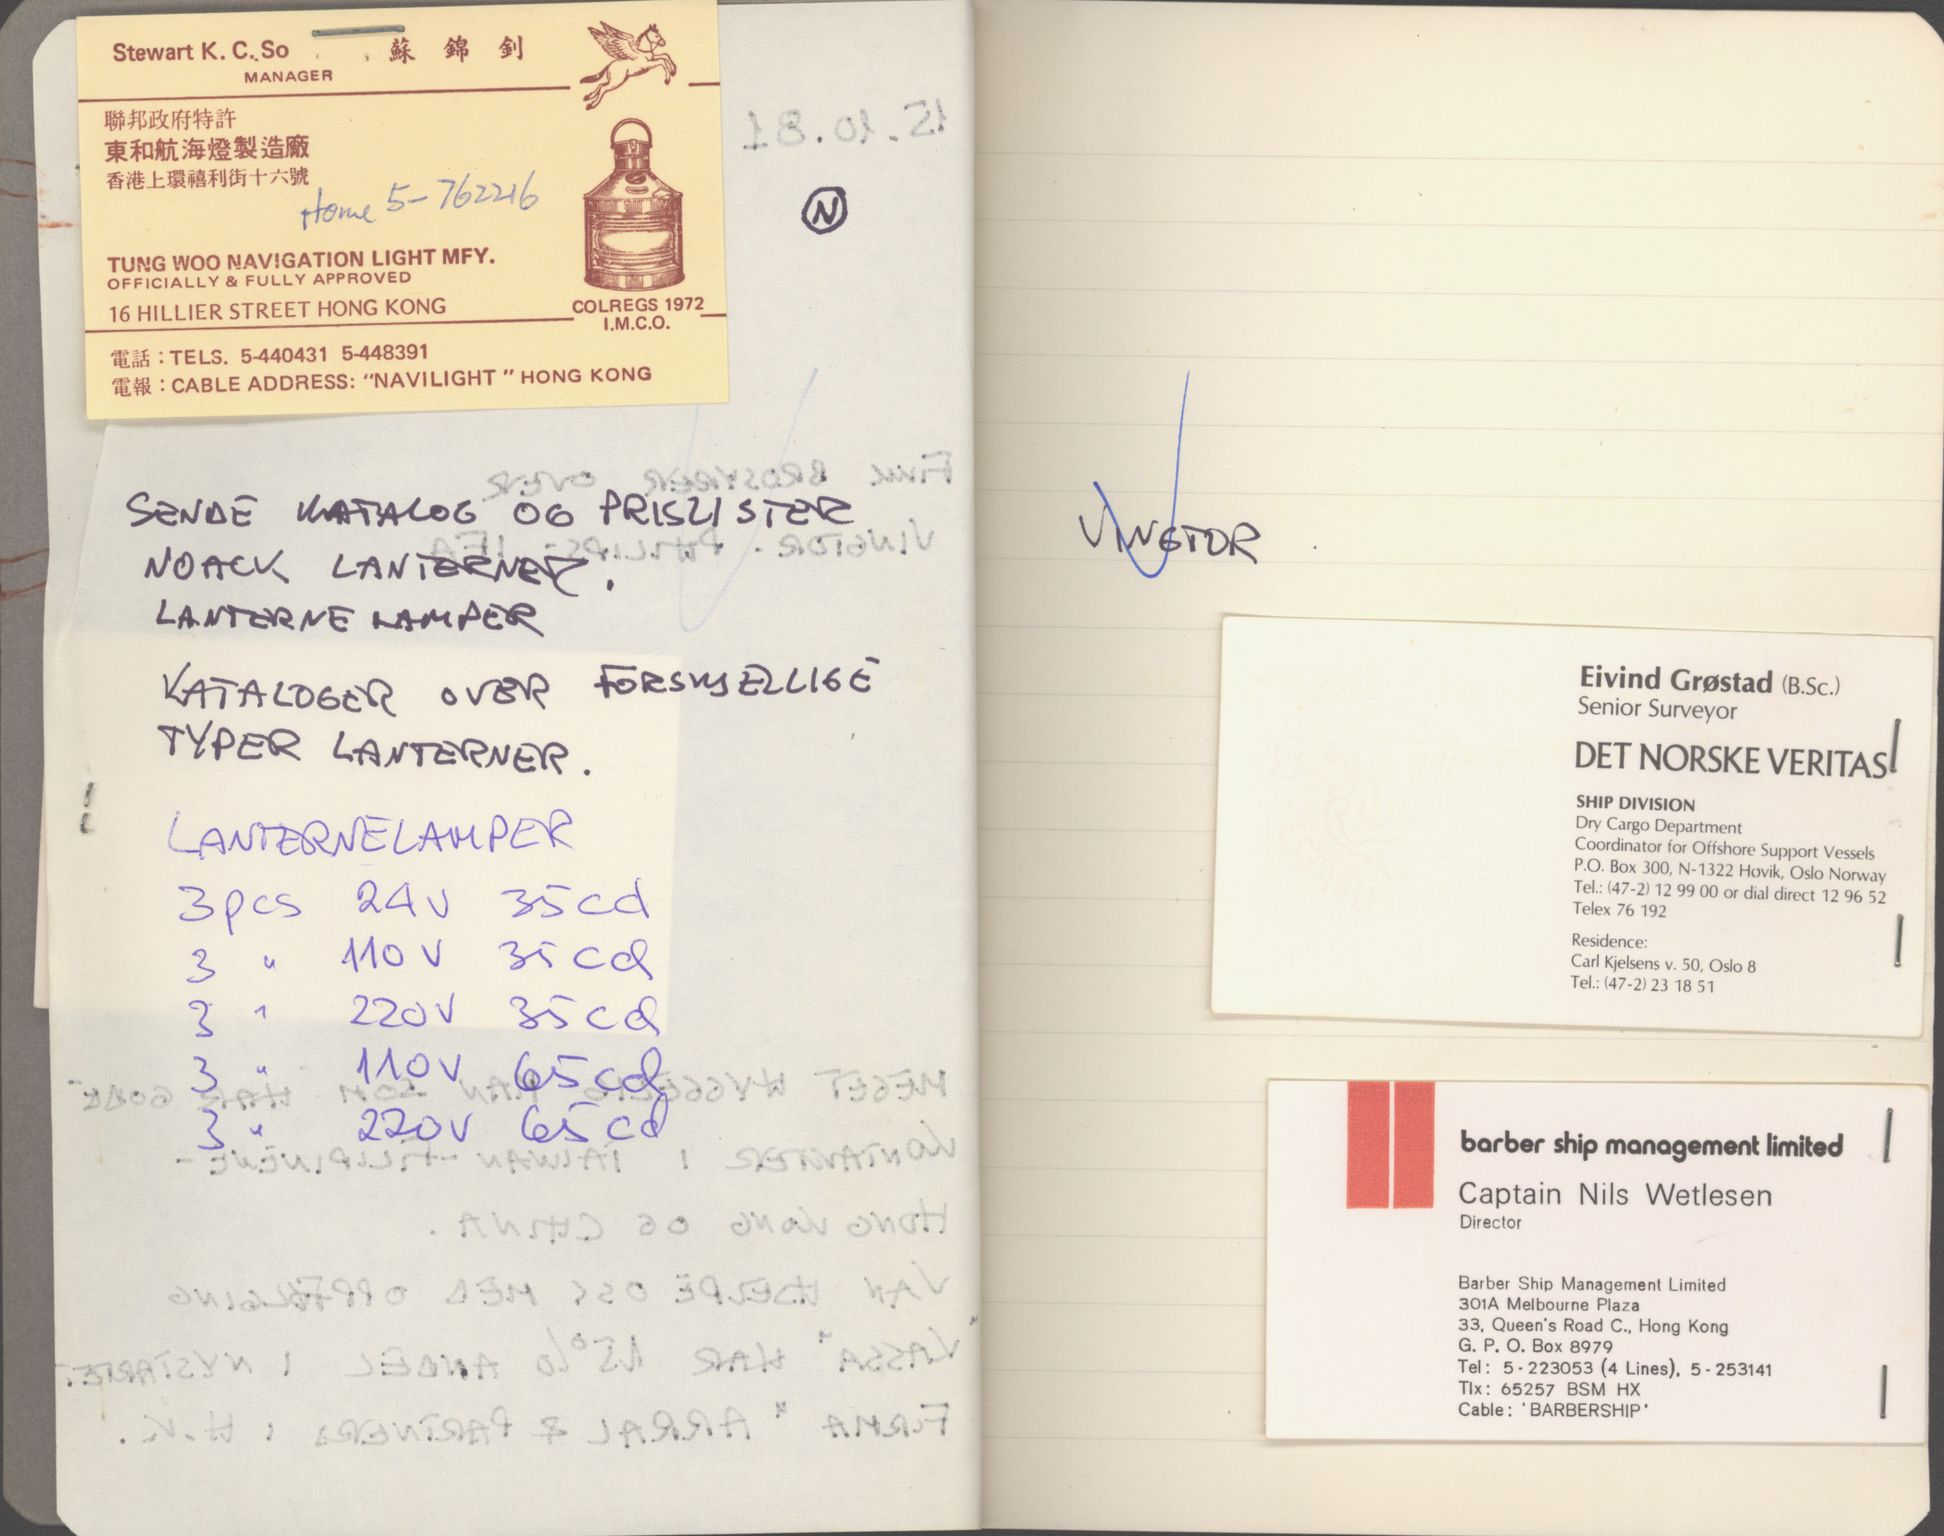 Stewart K. C. So 蘇 錦 釗
MANAGER
聯邦政府特許
東和航海燈製造廠
香港上環禧利街十六號
Home 5-762216
TUNG WOO NAVIGATION LIGHT MFY.
OFFICIALLY & FULLY APPROVED
16 HILLIER STREET HONG KONG
COLREGS 1972
I.M.C.O.
電話：TELS. 5-440431 5-448391
電報：CABLE ADDRESS: "NAVILIGHT" HONG KONG
15.10.81
N
SENDE KATALOG OG PRISLISTER
NOACK LANTERNER.
LANTERNE LAMPER
KATALOGER OVER FORSKJELLIGE
TYPER LANTERNER.
LANTERNELAMPER
3 pcs 24V 35cd
3 " 110V 35cd
3 " 220V 35cd
3 " 110V 65cd
3 " 220V 65cd
FINN BROSYRER OVER
VINGTOR - PHILIPS -
MEGET HYGGELIG MAN SOM HAR GODE
KONTAKTER I TAIWAN - FILIPINENE -
HONG KONG OG CHINA.
KAN HJELPE OSS MED OPPFØLGING
"KASSA" HAR 15% ANDEL I NYSTARTET
FIRMA " ARRAL & PARTNERS I H.K.
VINGTOR
Eivind Grøstad (B.Sc.)
Senior Surveyor
DET NORSKE VERITAS
SHIP DIVISION
Dry Cargo Department
Coordinator for Offshore Support Vessels
P.O. Box 300, N-1322 Høvik, Oslo Norway
Tel.: (47-2) 12 99 00 or dial direct 12 96 52
Telex 76 192
Residence:
Carl Kjelsens v. 50, Oslo 8
Tel.: (47-2) 23 18 51
barber ship management limited
Captain Nils Wetlesen
Director
Barber Ship Management Limited
301A Melbourne Plaza
33, Queen's Road C., Hong Kong
G. P. O. Box 8979
Tel: 5-223053 (4 Lines), 5-253141
Tlx: 65257 BSM HX
Cable: 'BARBERSHIP'